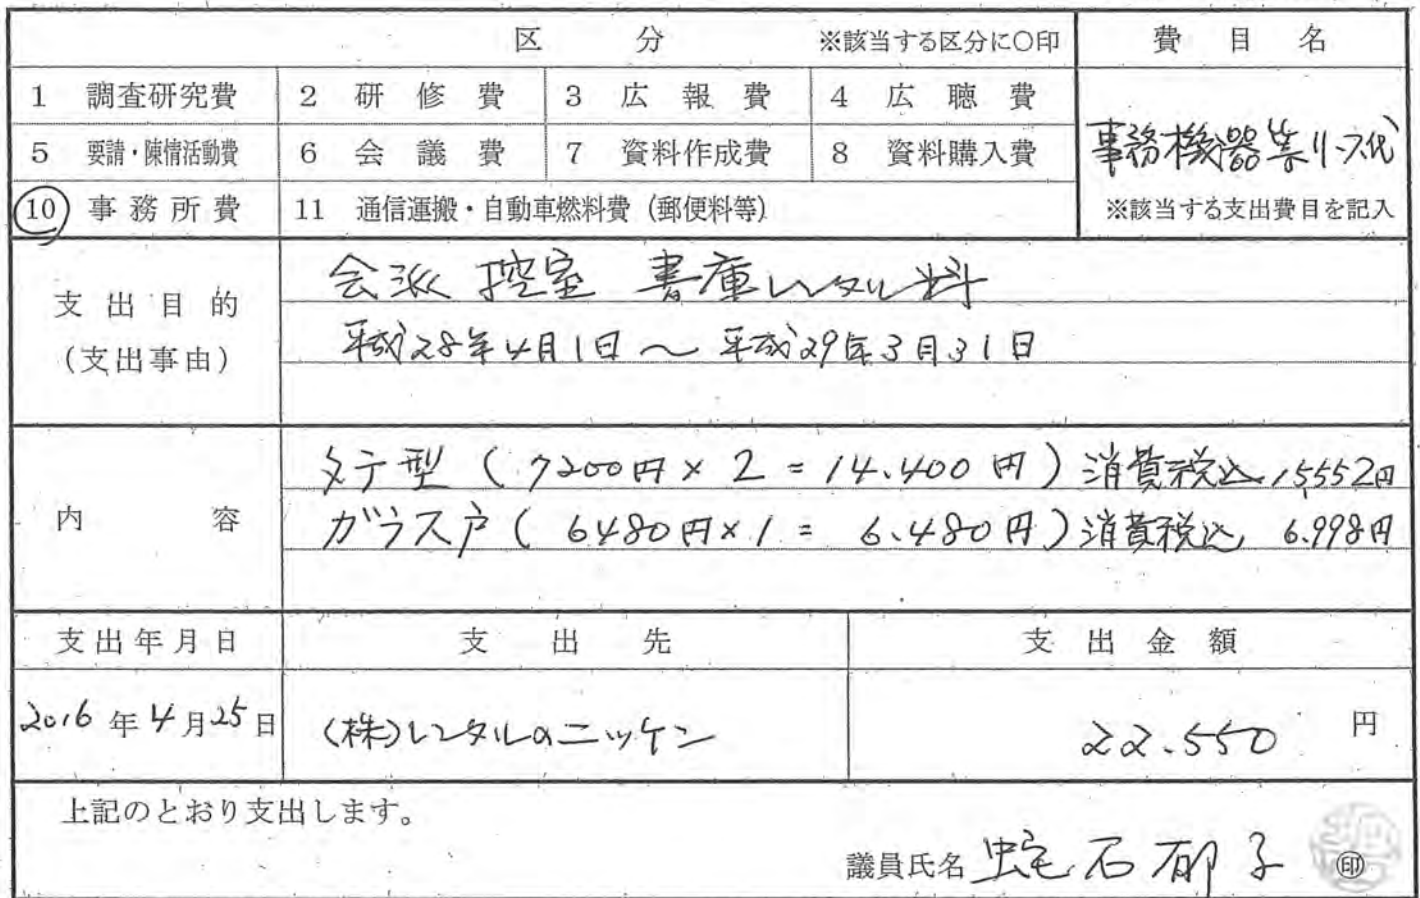 区 分 ※該当する区分に○印 費 目 名
1 調査研究費 2 研 修 費 3 広 報 費 4 広 聴 費
5 要請・陳情活動費 6 会 議 費 7 資料作成費 8 資料購入費
事務機器等リース代
10 事務所費 11 通信運搬・自動車燃料費(郵便料等) ※該当する支出費目を記入
支出目的
(支出事由)
会派 控室 書庫レンタル料
平成28年4月1日 ~ 平成29年3月31日
内 容
タテ型 (7200円 × 2 = 14.400円) 消費税込 15,552円
ガラス戸 ( 6480円 × 1 = 6.480円) 消費税込 6.998円
支出年月日 支 出 先 支 出 金 額
2016年4月25日 (株)レンタルのニッケン 22.550 円
上記のとおり支出します。
議員氏名 蛇石郁子 ㊞